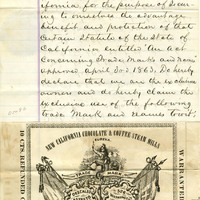 ifornia for the purpose of secur-
ing to ourselves the advantage
benefit and protection of that
Certain Statute of the State of
California entitled "An Act
Concerning Trade Marks and names
approved April 3d 1863. Do hereby
declare that we are the exclusive
owners and do hereby claim the
exclusive use of the following
trade Mark and names to wit.
NEW CALIFORNIA CHOCOLATE & COFFEE STEAM MILLS
EUREKA
10 CTS. REFUNDED
WARRANTED